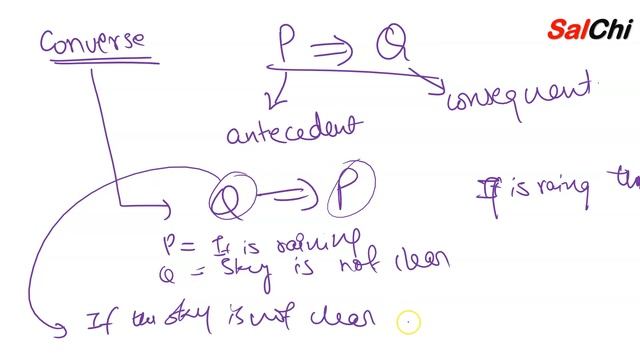 SalChi
Converse
P ⇒ Q
consequent
antecedent
Q ⇒ P
If is raing th
P = It is raining
Q = Sky is not clear
If the sky is not clear